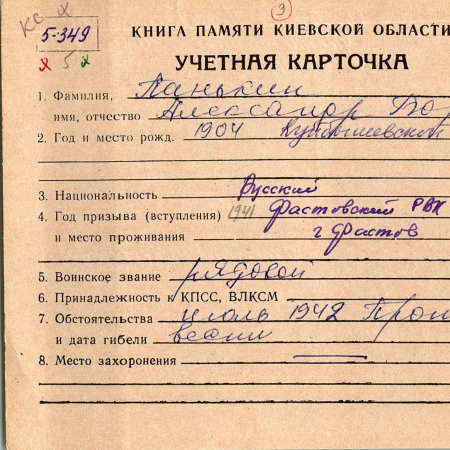 КС х
9
5-349
х 5 х
КНИГА ПАМЯТИ КИЕВСКОЙ ОБЛАСТИ
УЧЕТНАЯ КАРТОЧКА
1. Фамилия, Панькин
имя, отчество Александр
2. Год и место рожд. 1904 Куйбышевской
3. Национальность Русский
4. Год призыва (вступления) 1941 Фастовский РВК
и место проживания г Фастов
5. Воинское звание рядовой
6. Принадлежность к КПСС, ВЛКСМ
7. Обстоятельства июль 1942 Проп
и дата гибели вести
8. Место захоронения —